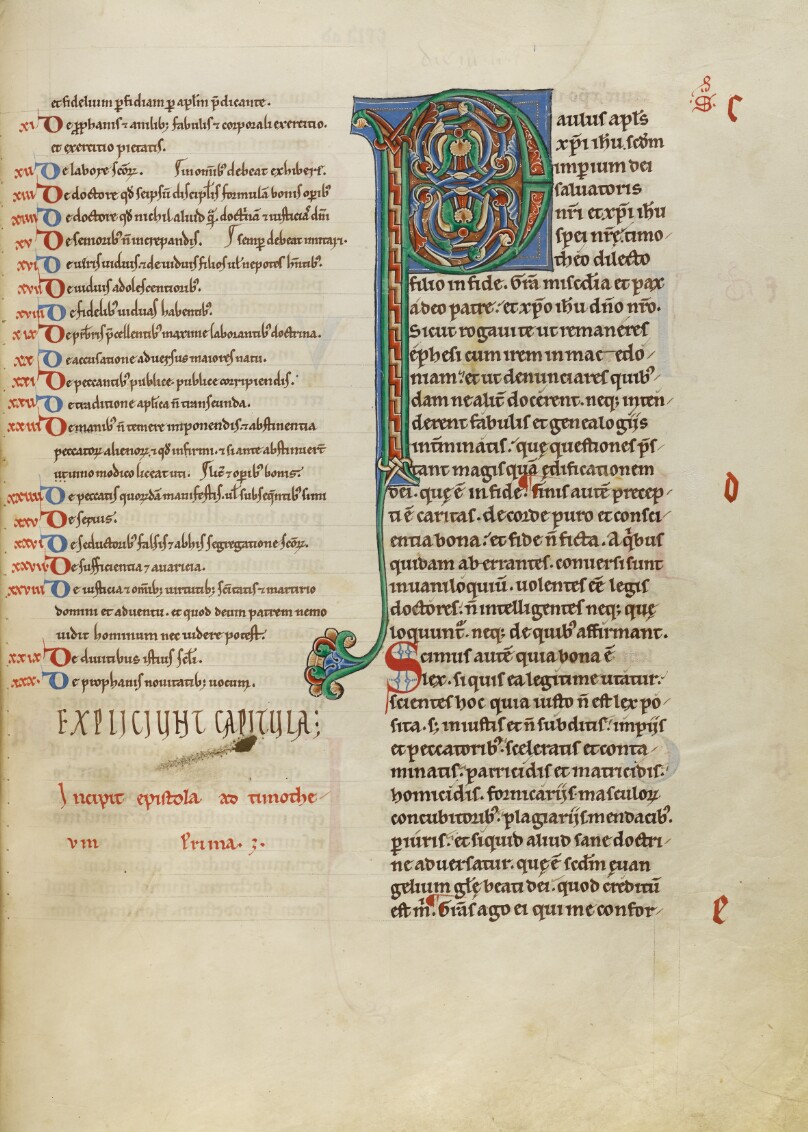 et fidelium ꝑfidiam ꝑ aplm p̄dicante.
xi De ꝓphanis ⁊ anilibꝫ fabulis ⁊ corporali exercitio.
et exercitio pietatis.
xii De labore scōꝝ. in omībꝫ debeat exhiberi.
xiii De doctore qd seipsū discipl̄is formulā bonis oꝑibꝫ
xiiii De doctore qd nichil aliud doctnā ⁊ iusticiā dnī
xv De senioribꝫ n̄ increpandis. semꝑ debeat imitari.
xvi De uiris uiduis ⁊ de uiduis filios ul nepotes hntibꝫ.
xvii De uiduis adolescentioribꝫ.
xviii De fidelibꝫ uiduas habentibꝫ.
xix De pr̄bris p̄cellentibꝫ maxime laborantibꝫ doctrina.
xx De accusatione aduersus maiores natu.
xxi De peccantibꝫ publice. publice corripiendis.
xxii De traditione aplica n̄ transeunda.
xxiii De manibꝫ n̄ temere imponendis. ⁊ abstinentia
peccatoꝝ alienoꝝ. ⁊ qd infirmi. ⁊ si ante abstinuerit
ut uino modico liceat uti. oꝑibꝫ bonis.
xxiiii De peccatis quordā manifestis. ul subseq̄ntibꝫ
xxv De seruis.
xxvi De seductoribꝫ falsis ⁊ ab his segregatione scōꝝ.
xxvii De sufficientia ⁊ auaricia.
xxviii De iusticia ⁊ omībꝫ uirtutibꝫ scītatis ⁊ martirio
domini et aduentu. et quod deum patrem nemo
uidit hominum nec uidere potest.
xxix De diuitibus istius scl̄i.
xxx. De prophanis nouitatibꝫ uocum.
EXPLICIUNT CAPITULA;
Incipit epistola ad timothe
um Prima.
Paulus apl̄s
xp̄i ihu. scdm
imperium dei
saluatoris
nr̄i et xp̄i ihu
spei nr̄ę. timo
theo dilecto
filio in fide. Gr̄a misc̄dia et pax
a deo patre. et xp̄o ihu dño nr̄o.
Sicut rogaui te ut remaneres
ephesi cum irem in macedo
niam. et ut denunciares quibꝫ
dam ne alit̄ docerent. neqꝫ inten
derent fabulis et genealogiis
int̄minatis. quę questiones p̄s
tant magis quā ędificationem
dei. quę ē in fide. Finis autē precep
ti ē caritas. de corde puro et consci
entia bona. et fide n̄ ficta. A q̇bus
quidam aberrantes. conuersi sunt
in uaniloquiū. uolentes eē legis
doctores. n̄ intelligentes neqꝫ quę
loquunt̄. neqꝫ de quibꝫ affirmant.
Scimus autē quia bona ē
lex. si quis ea legitime utatur.
scientes hoc quia iusto n̄ est lex po
sita. sꝫ iniustis et n̄ subditis. impiis
et peccatoribꝫ. sceleratis et conta
minatis. patricidis et matricidis.
homicidis. fornicariis. masculoꝝ
concubitoribꝫ. plagiariis. mendacibꝫ.
ꝑiuris. et siquid aliud sane doctri
ne aduersatur. quę ē scdm ęuan
gelium glę beati dei. quod creditū
est m. Gr̄as ago ei qui me confor
c
d
e